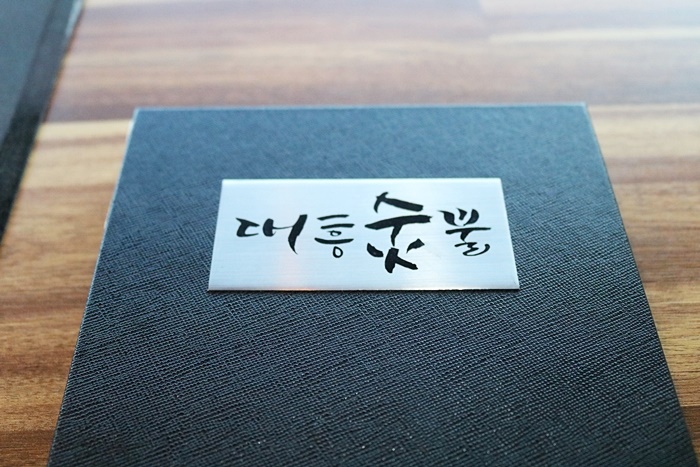 대흥숯불